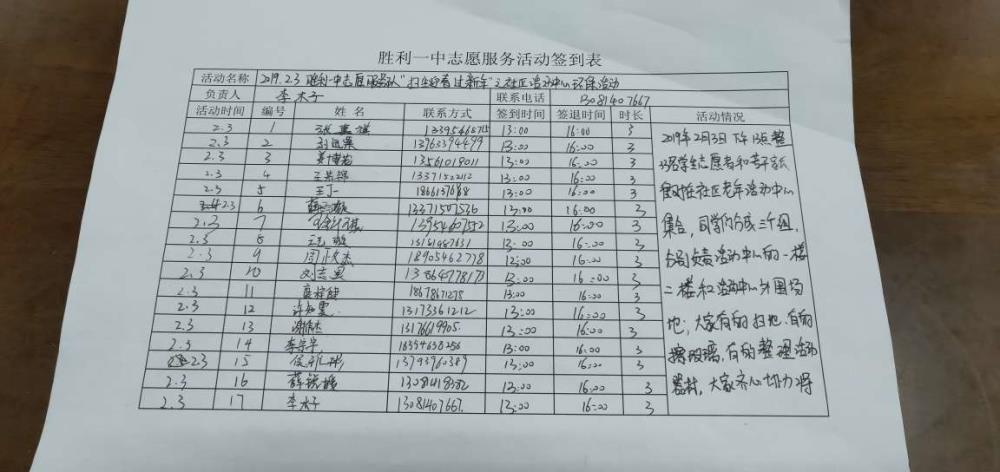 胜利一中志愿服务活动签到表
活动名称 2019.2.3 胜利一中志愿服务队"扫尘迎春过新年"之社区活动中心环保活动
负责人 李木子 联系电话 13081407667
活动时间 编号 姓名 联系方式 签到时间 签退时间 时长 活动情况
2.3 1 13:00 16:00 3
2.3 2 13963394499 13:00 16:00 3
2.3 3 姜博岩 13561019011 13:00 16:00 3
2.3 4 13371522112 13:00 16:00 3
2.3 5 王丁一 13:00 16:00 3
2.3 6 13371507536 13:00 16:00 3
2.3 7 13954607552 13:00 16:00 3
2.3 8 15161487631 13:00 16:00 3
2.3 9 周正杰 18905462778 13:00 16:00 3
2.3 10 刘志昊 13:00 16:00 3
2.3 11 18678671275 13:00 16:00 3
2.3 12 许如雯 13173361212 13:00 16:00 3
2.3 13 谢伟杰 13176619905 13:00 16:00 3
2.3 14 李宗宇 18354638256 13:00 16:00 3
2.3 15 13793960389 13:00 16:00 3
2.3 16 13:00 16:00 3
2.3 17 李木子 13081407667 13:00 16:00 3
2019年2月3日下午13点整
学生志愿者和若干家长
在社区老年活动中心
集合,同学们分成三个组,
分别负责活动中心的一楼
二楼和活动中心外围场
地,大家有的扫地,有的
擦玻璃,有的整理活动
器材,大家齐心协力将